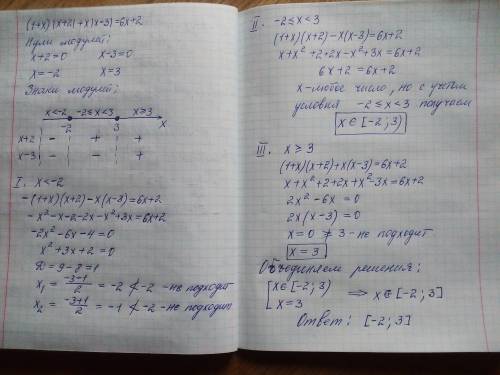 (1+x)|x+2|+x|x-3|=6x+2
Нули модулей:
x+2=0 x-3=0
x=-2 x=3
Знаки модулей:
x<-2 -2≤x<3 x≥3
-2 3 x
x+2 - + +
x-3 - - +
I. x<-2
-(1+x)(x+2)-x(x-3)=6x+2
-x²-x-2-2x-x²+3x=6x+2
-2x²-6x-4=0
x²+3x+2=0
D=9-8=1
x₁=(-3-1)/2=-2 ≮-2 -не подходит
x₂=(-3+1)/2=-1 ≮-2 -не подходит
II. -2≤x<3
(1+x)(x+2)-x(x-3)=6x+2
x+x²+2+2x-x²+3x=6x+2
6x+2=6x+2
x-любое число, но с учётом
условия -2≤x<3 получаем
x∈[-2;3)
III. x≥3
(1+x)(x+2)+x(x-3)=6x+2
x+x²+2+2x+x²-3x=6x+2
2x²-6x=0
2x(x-3)=0
x=0 ≱3-не подходит
x=3
Объединяем решения:
[x∈[-2;3)
x=3 ⟹ x∈[-2;3]
Ответ: [-2;3]